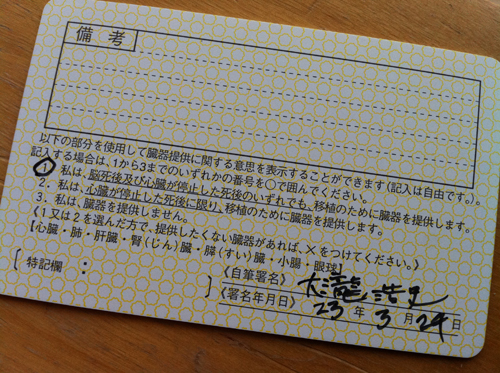 備考
以下の部分を使用して臓器提供に関する意思を表示することができます(記入は自由です。)。
記入する場合は、1から3までのいずれかの番号を○で囲んでください。
1. 私は、脳死後及び心臓が停止した死後のいずれでも、移植のために臓器を提供します。
2. 私は、心臓が停止した死後に限り、移植のために臓器を提供します。
3. 私は、臓器を提供しません。
《1又は2を選んだ方で、提供したくない臓器があれば、×をつけてください。》
【心臓・肺・肝臓・腎(じん)臓・膵(すい)臓・小腸・眼球】
〔特記欄: 〕
《自筆署名》 大瀧 浩史
《署名年月日》 23 年 3 月 24 日